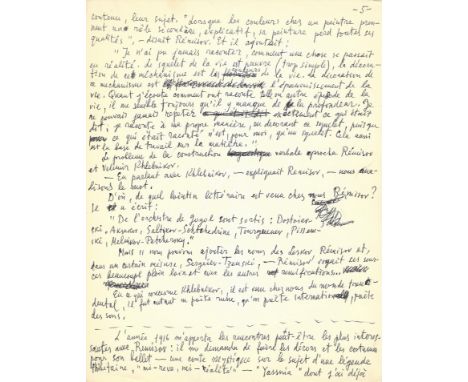 - 5 -
contenu, leur sujet. "Lorsque les couleurs chez un peintre pren-
nent un rôle secondaire, explicatif, sa peinture perd toutes ses
qualités", — disait Rémisov. Et il ajoutait:
"Je n'ai pu jamais raconter, comment une chose se passait
en réalité. Le squelet de la vie est pauvre (trop simple), la décora-
tion de ce méchanisme est les couleurs de la vie. La décoration de
ce mechanisme est l'épanouissement de la
vie. Quand j'écoute comment ont raconté tel ou autre épisode de la
vie, il me semble toujours qu'il y manque de la profondeur. Je
ne pouvais jamais repeter exactement ce qui était
dit; je raconte à ma propre manière, en décorant ce squelet, puisque
ce qui était raconté n'est, pour moi, qu'un squelet. Cela aussi
est la base de travail sur la matière."
Le problème de la construction verbale aprocha Rémisov
et Velimir Khlebnikov.
— En parlant avec Khlebnikov, — expliquait Remisov, — nous
lisions le mot.
D'où, de quel lointin littéraire est venu chez nous Rémisov?
Il a écrit:
"De l'orchestre de Gogol sont sortis: Dostoïev-
ski, Aksakov, Saltykov-Schtchédrine, Tourgueniev, Pissem-
ski, Melnikov-Petchersky."
Mais il nous pouvons ajouter les noms de Leskov, Rémisov et,
dans un certain mésure, Serguéev-Tzenski, — Rémisov voyait ses sour-
ces beaucoup plus loin et avec les autres ramifications.
En ce qui concerne Khlebnikov, il est venu chez nous du monde trans-
dental, il fut autant un poète russe, qu'un poète international, poète
des sons.
L'année 1916 m'apporta les rencontres peut-être les plus interes-
santes avec Remisov: il me demanda de faire les décors et les costumes
pour son ballet — un conte mystique sur le sujet d'une légende
"mi-reve, mi-réalité" — "Yassnia" dont j'ai déjà